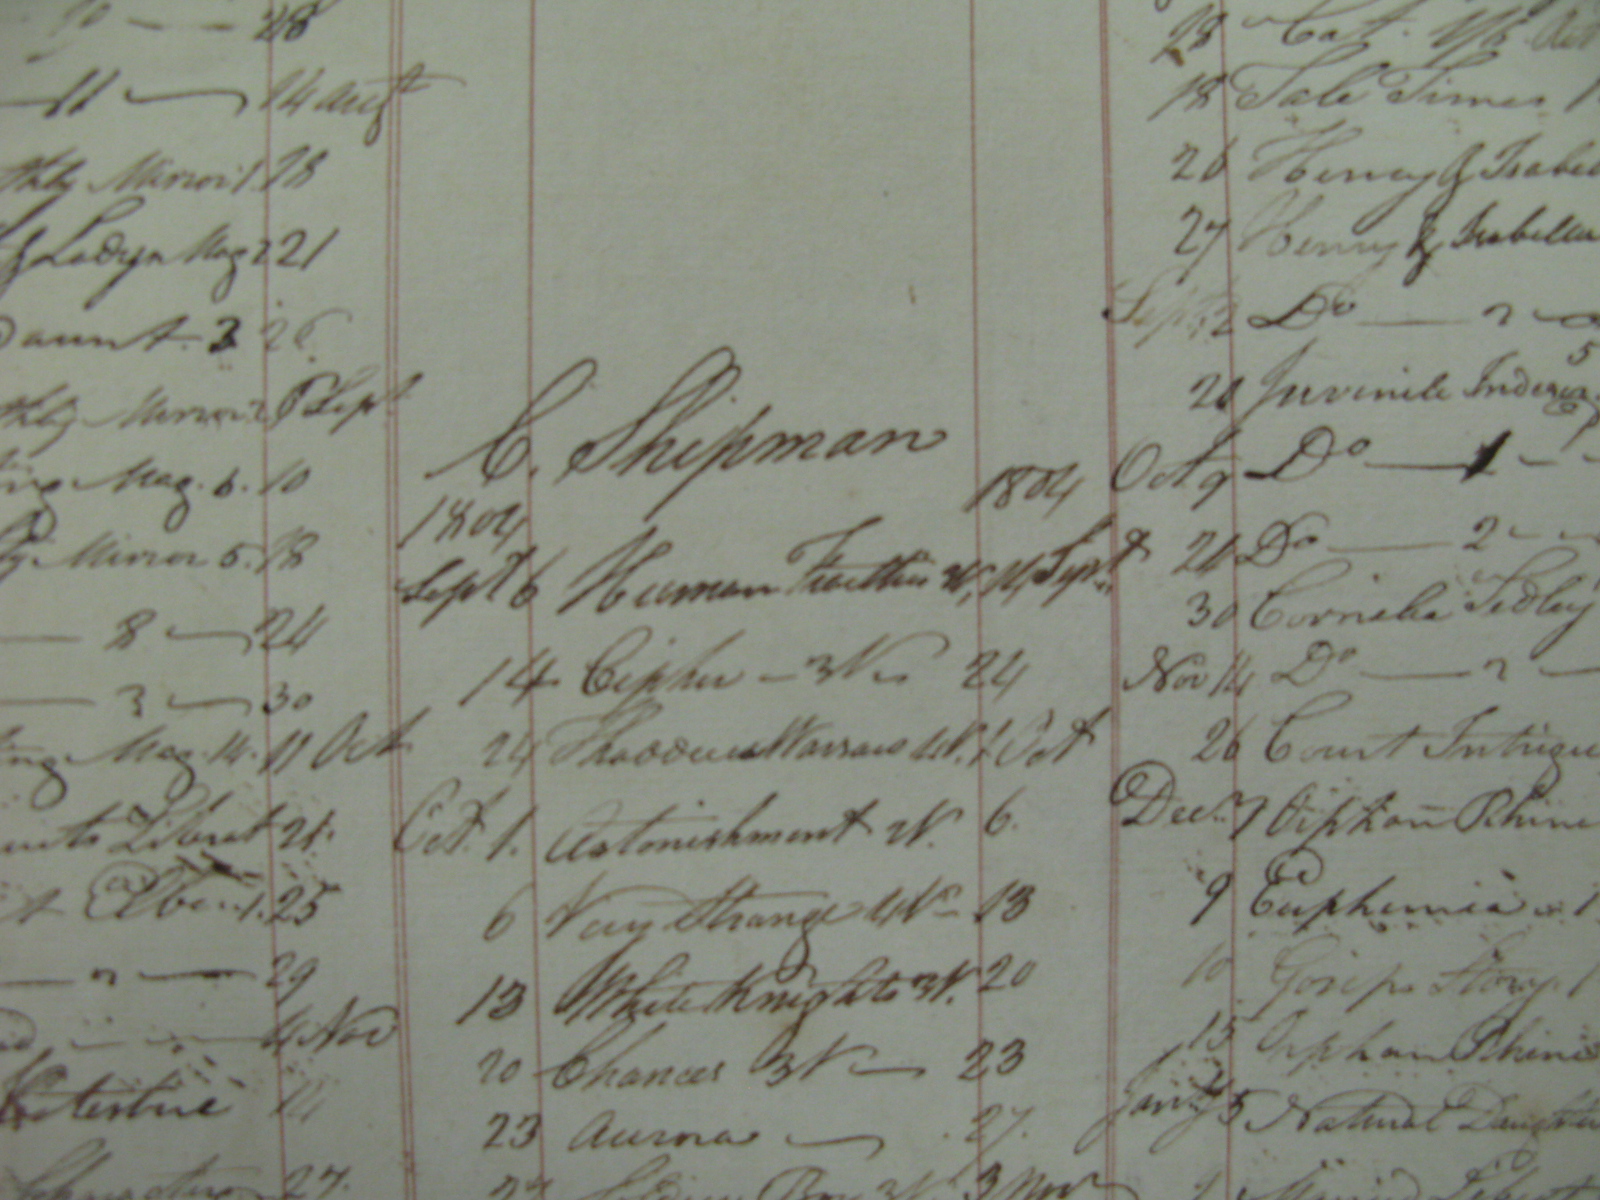 28
11 14 Augt
thly Mirror 1. 18
Ladys Mag 2 21
Daunt. 3 26
thly Mirror 2 5 Sept
ing Mag. 6. 10
Mirror 5. 18
8 24
3 30
ing Mag. 14. 11 Oct
Liberat 21.
25
29
4 Nov
14
27.
C. Shipman
1804 1804
Sept 6 Human Frailties 14 Sept
14 Cipher - 3 Vs 24
24 Thaddeus Warsaw 4 V. 1 Oct
Oct. 1. Astonishment 2 V. 6.
6 Very Strange 4 Vs 13
13 White Knights 3 V. 20
20 Chances 3 V 23
23 Aurora 27.
3 Novr
28 Cat.
18 Tale Times 1
26 Henry & Isabel
27 Henry & Isabella
Sept. 2 Do 2
20 Juvenile
Oct 9 Do 1
24 Do 2
30 Cornelia Sedley
Nov 14 Do 2
26 Court Intrigue
Dec. 7 Orphan Rhine
9 Euphemia 1
10 Gosips Story 1
15 Orphan Rhine
Jany 5 Natural Daughter